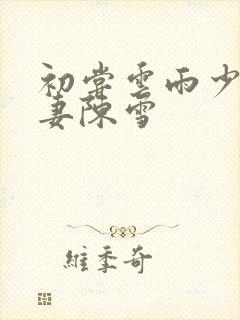 初尝雲雨少
妻陳雪
維季奇